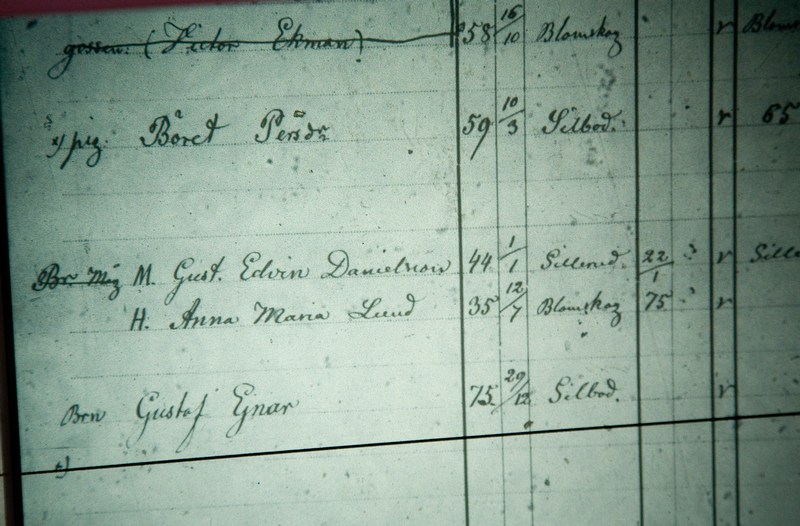 gossen. (Victor Ekman) 58 16/10 Blomskog r Bloms
x) pig. Böret Persdr 59 10/3 Silbod. r 65
Br. Måg M. Gust. Edvin Danielsson 44 1/1 Sillerud. 22/1 r Sille
H. Anna Maria Lund 35 12/7 Blomskog 75 r
Brn Gustaf Ejnar 75 29/12 Silbod. r